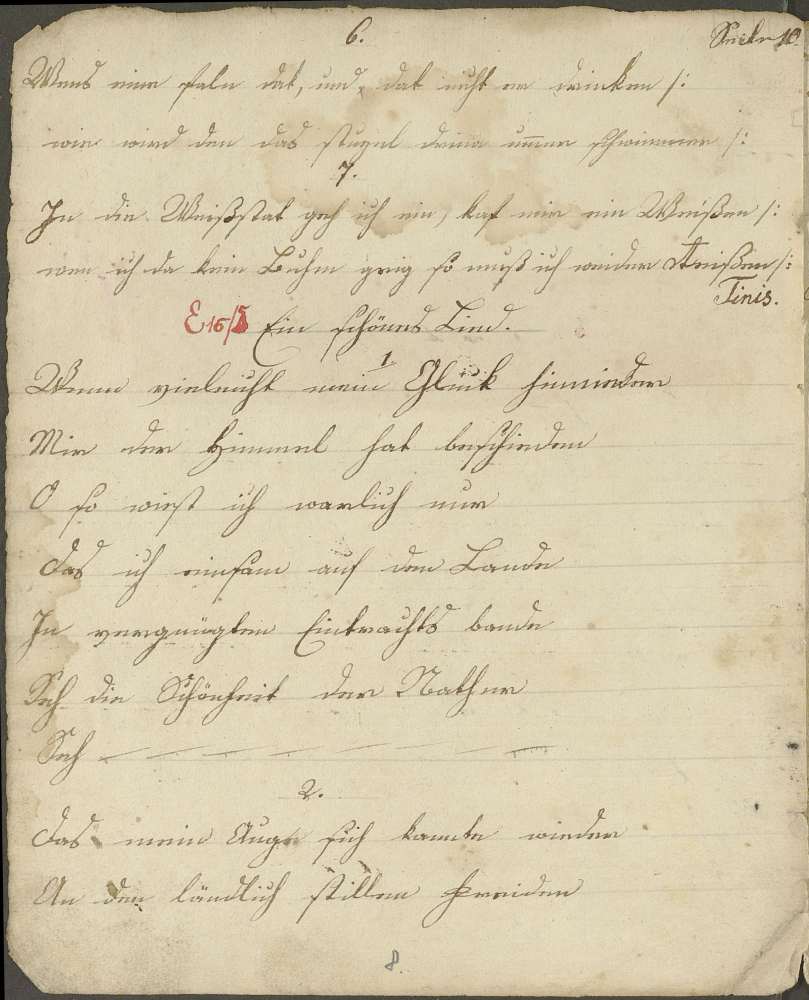 6.
Seite 10
Wens eine faln dat, und, dat nicht er drinken /:
wie wird den das drina umer schwimmen /:
7.
In die Weißstat geh ich ein, kaf mir ein Weißen /:
wen ich da kein Buhm grig so muß ich wieder Areißen /:
Finis.
E 16/5 Ein schönes Lied.
1.
Wenn vieleicht mein Glück hinnieder
Mir der Himmel hat beschieden
O so wiest ich warlich nur
Das ich einsam auf dem Lande
In vergnügten Eintrachts bande
Seh die Schönheit der Nathur
Seh
2.
Das mein Auge sich kannte wieder
An den ländlich stillen Freiden
8.